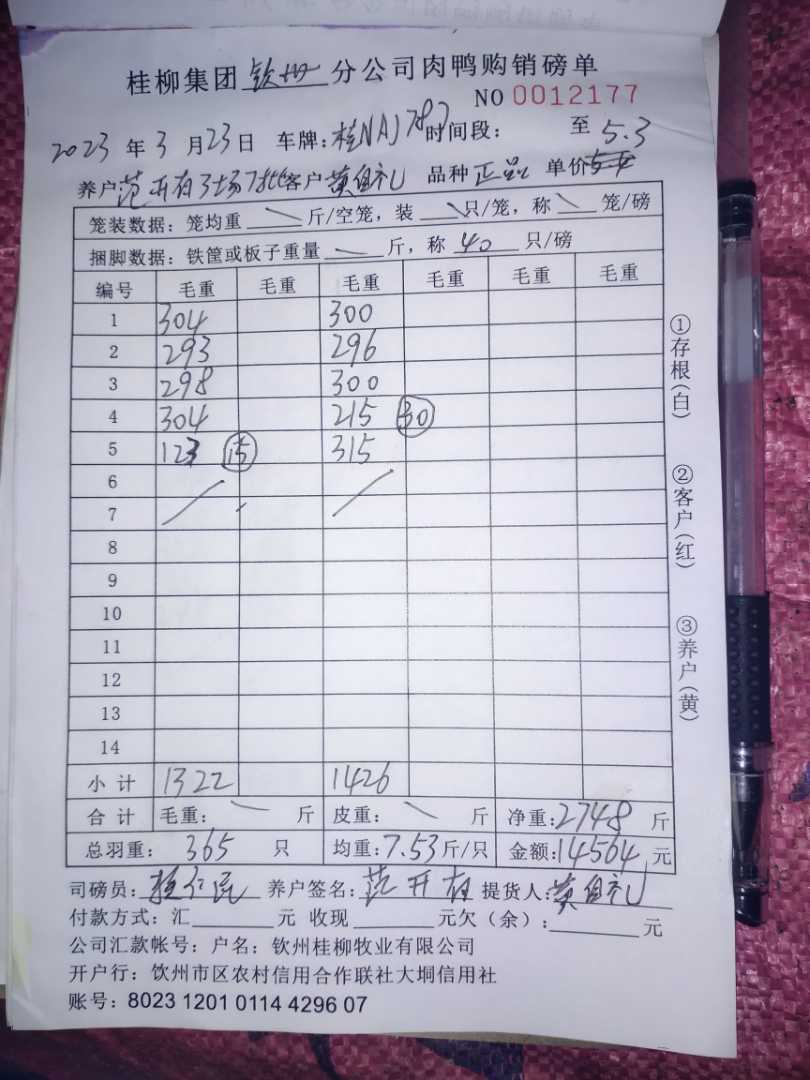 桂柳集团 钦州 分公司肉鸭购销磅单
NO 0012177
2023 年 3 月 23 日 车牌: 桂NAJ787 时间段: 至 5.3
养户 范开有 客户 黄自礼 品种 正品 单价
笼装数据: 笼均重 \ 斤/空笼, 装 \ 只/笼, 称 \ 笼/磅
捆脚数据: 铁筐或板子重量 — 斤, 称 40 只/磅
编号 毛重 毛重 毛重 毛重 毛重 毛重
1 304 300
2 293 296
3 298 300
4 304 215 30
5 123 15 315
6
7
8
9
10
11
12
13
14
小计 1322 1426
合计 毛重: \ 斤 皮重: \ 斤 净重: 2748 斤
总羽重: 365 只 均重: 7.53 斤/只 金额: 14564 元
司磅员: 养户签名: 范开有 提货人: 黄自礼
付款方式: 汇 元 收现 元欠(余): 元
公司汇款帐号: 户名: 钦州桂柳牧业有限公司
开户行: 饮州市区农村信用合作联社大垌信用社
账号: 8023 1201 0114 4296 07
①存根(白)
②客户(红)
③养户(黄)